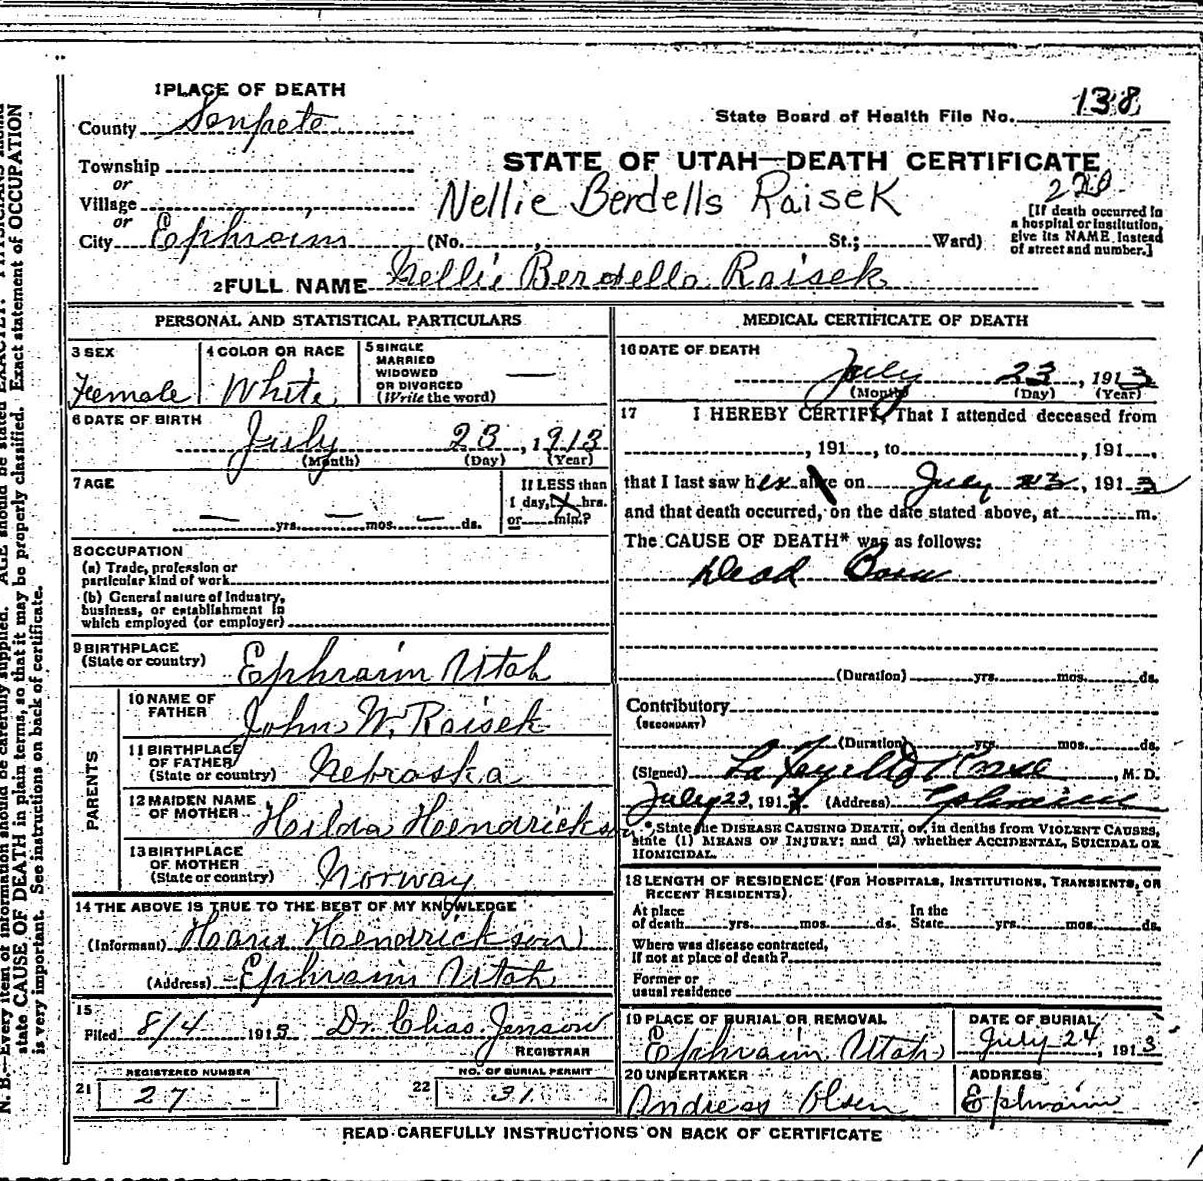 1 PLACE OF DEATH
County Sanpete
State Board of Health File No. 138
Township
or
Village
or
City Ephraim (No. , St.; Ward)
STATE OF UTAH—DEATH CERTIFICATE
Nellie Berdells Raisek
220
[If death occurred in
a hospital or institution,
give its NAME instead
of street and number.]
2 FULL NAME Nellie Berdella Raisek
PERSONAL AND STATISTICAL PARTICULARS
3 SEX
Female
4 COLOR OR RACE
White
5 SINGLE
MARRIED
WIDOWED
OR DIVORCED
(Write the word)
—
6 DATE OF BIRTH
July 23, 1913
(Month) (Day) (Year)
7 AGE
— yrs. — mos. — ds.
If LESS than
1 day, hrs.
or min.?
8 OCCUPATION
(a) Trade, profession or
particular kind of work
(b) General nature of Industry,
business, or establishment in
which employed (or employer)
9 BIRTHPLACE
(State or country) Ephraim Utah
PARENTS
10 NAME OF
FATHER John W. Raisek
11 BIRTHPLACE
OF FATHER
(State or country) Nebraska
12 MAIDEN NAME
OF MOTHER Hilda Hendrickson
13 BIRTHPLACE
OF MOTHER
(State or country) Norway
14 THE ABOVE IS TRUE TO THE BEST OF MY KNOWLEDGE
(Informant) Hendrickson
(Address) Ephraim Utah
15
Filed 8/4 1913 Dr. Chas. Jenson
REGISTRAR
REGISTERED NUMBER
21 27
NO. OF BURIAL PERMIT
22 31
MEDICAL CERTIFICATE OF DEATH
16 DATE OF DEATH
July 23, 1913
(Month) (Day) (Year)
17 I HEREBY CERTIFY, That I attended deceased from
, 191 , to , 191 ,
that I last saw her alive on July 23, 1913
and that death occurred, on the date stated above, at m.
The CAUSE OF DEATH* was as follows:
Dead Born
(Duration) yrs. mos. ds.
Contributory
(SECONDARY)
(Duration) yrs. mos. ds.
(Signed) , M. D.
July 23, 1913 (Address) Ephraim
*State the DISEASE CAUSING DEATH, or, in deaths from VIOLENT CAUSES,
state (1) MEANS OF INJURY; and (2) whether ACCIDENTAL, SUICIDAL OR
HOMICIDAL.
18 LENGTH OF RESIDENCE (FOR HOSPITALS, INSTITUTIONS, TRANSIENTS, OR
RECENT RESIDENTS)
At place
of death yrs. mos. ds.
In the
State yrs. mos. ds.
Where was disease contracted,
If not at place of death?
Former or
usual residence
19 PLACE OF BURIAL OR REMOVAL
Ephraim, Utah
DATE OF BURIAL
July 24, 1913
20 UNDERTAKER
Andreas Olsen
ADDRESS
Ephraim
READ CAREFULLY INSTRUCTIONS ON BACK OF CERTIFICATE
N. B.—Every item of information should be carefully supplied. AGE should be stated EXACTLY. PHYSICIANS should
state CAUSE OF DEATH in plain terms, so that it may be properly classified. Exact statement of OCCUPATION
is very important. See instructions on back of certificate.